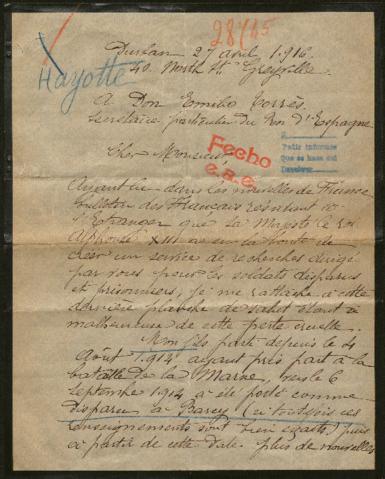 28745
Durban 27 avril 1.916.
40. North St. Greyville.
Hayotte
A Don Emilio Torrès
Secretaire particulier du Roi d'Espagne
Cher Monsieur
Fecho
e.a.e.
París informe
Que se hace así
Ayant lu dans les nouvelles de France
bulletin des Français résidant à
l'Etranger que Sa Majesté le roi
Alphonse XIII a eu la bonté de
créer un service de recherches dirigé
par vous pour les soldats disparus
et prisonniers, je me rattache à cette
dernière planche de salut étant si
malheureuse de cette perte cruelle.
Mon fils parti depuis le 4
Août 1.914 ayant pris part à la
bataille de la Marne, vers le 6
Septembre 1.914 a été porté comme
disparu à Barcy (si toutefois ces
renseignements sont bien exacts) puis
à partir de cette date plus de nouvelles